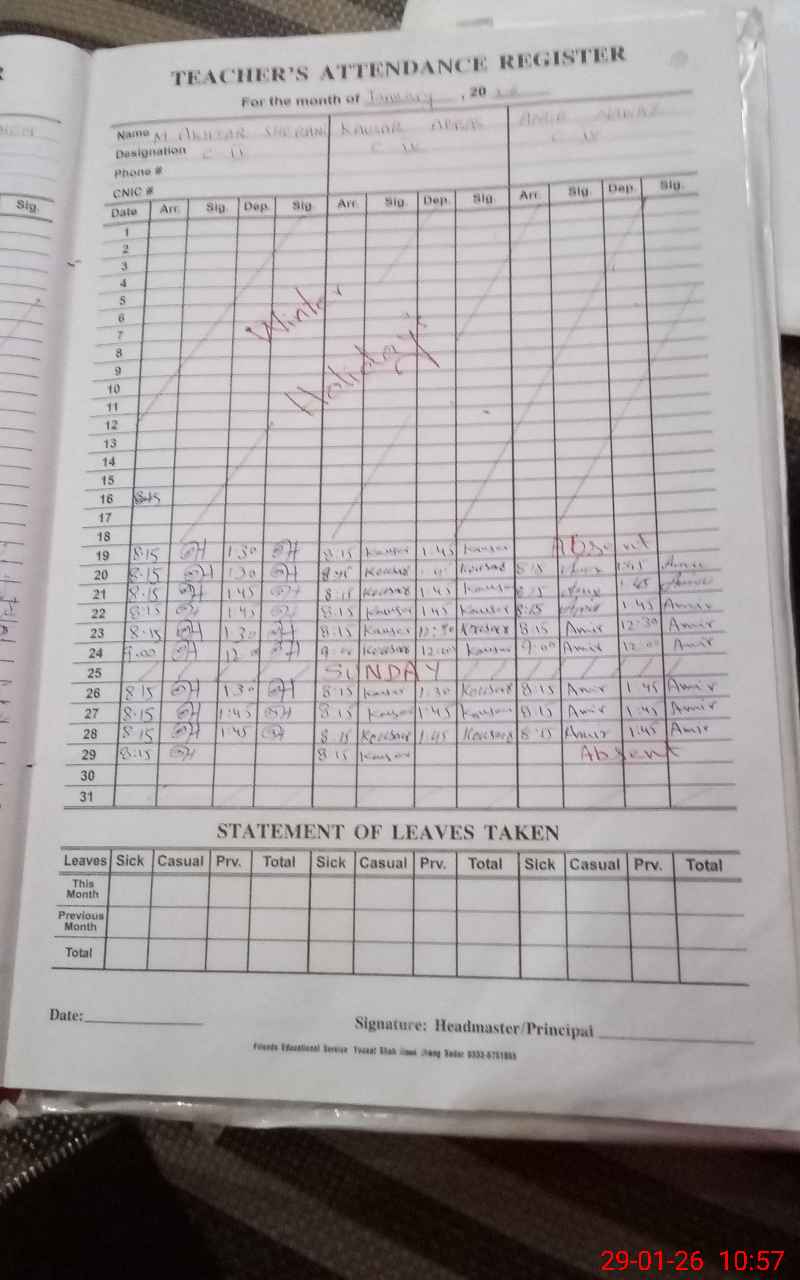 TEACHER'S ATTENDANCE REGISTER
For the month of January, 20 26
Name M. AKHTAR SHERANI KAUSAR ABBAS AMIR NAWAZ
Designation C IV C IV C IV
Phone #
CNIC #
Sig.
Date Arr. Sig. Dep. Sig. Arr. Sig. Dep. Sig. Arr. Sig. Dep. Sig.
1
2
3
4
5
6
7
Winter
8
9
10
Holidays
11
12
13
14
15
16 8:15
17
18
19 8:15 1:30 8:15 Kausar 1:45 Kausar Absent
20 8:15 1:30 Kousar Kousar 8:15 1:45 Amir
21 8:15 1:45 8:15 Kousar 1:45 Kausar 8:15 Amir 1:45 Amir
22 8:15 1:45 8:15 Kausar 1:45 Kausar 8:15 Amir 1:45 Amir
23 8:15 1:30 8:15 Kausar 12:30 Kousar 8:15 Amir 12:30 Amir
24 9:00 12:00 9:00 Kousar 12:00 Kausar 9:00 Amir 12:00 Amir
25 SUNDAY
26 8:15 1:30 8:15 Kausar 1:30 Kousar 8:15 Amir 1:45 Amir
27 8:15 1:45 8:15 Kausar 1:45 Kausar 8:15 Amir 1:45 Amir
28 8:15 1:45 8:15 Kousar 1:45 Kousar 8:15 Amir 1:45 Amir
29 8:15 8:15 Kausar Absent
30
31
STATEMENT OF LEAVES TAKEN
Leaves Sick Casual Prv. Total Sick Casual Prv. Total Sick Casual Prv. Total
This Month
Previous Month
Total
Date:
Signature: Headmaster/Principal
Friends Educational Service Jhang Sadar
29-01-26 10:57